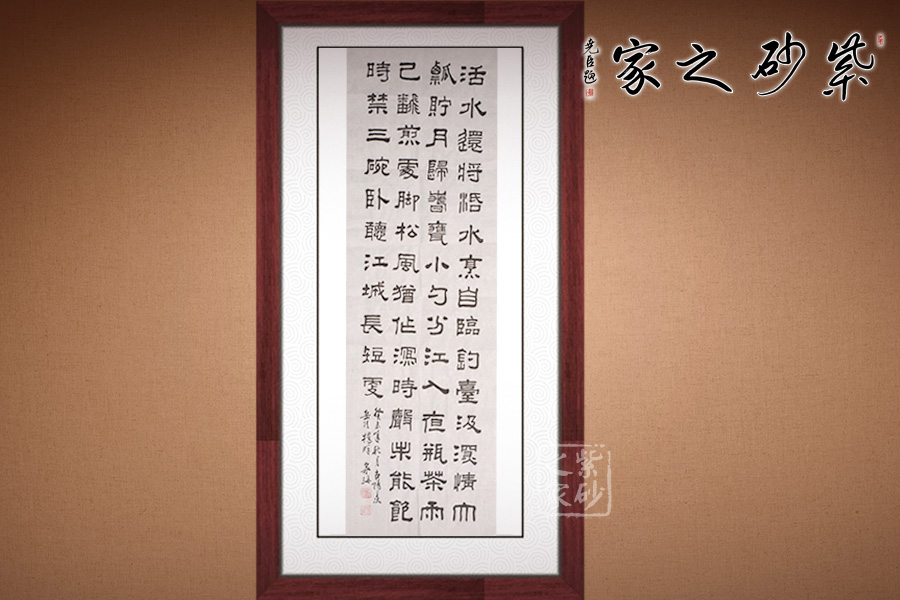 紫砂之家
活水還將活水烹自臨釣臺汲深情大
瓢貯月歸春甕小勺分江入夜瓶茶雨
已翻煎處脚松風猶作瀉時聲未能飽
時禁三碗卧聽江城長短更
紫砂之家